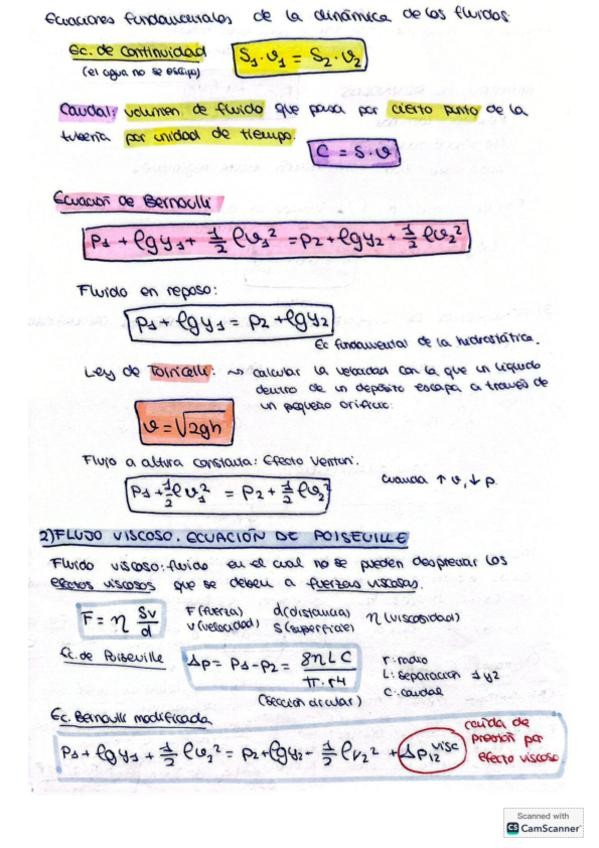 Ecuaciones fundamentales de la dinámica de los fluidos.
Ec. de Continuidad
S₁·v₁ = S₂·v₂
(el agua no se escapa)
Caudal: volumen de fluido que pasa por cierto punto de la
tubería por unidad de tiempo.
C = S·v
Ecuación de Bernoulli
P₁ + ρgy₁ + 1/2 ρv₁² = P₂ + ρgy₂ + 1/2 ρv₂²
Fluido en reposo:
P₁ + ρgy₁ = P₂ + ρgy₂
Ec fundamental de la hidrostática.
Ley de Torricelli: ~> calcular la velocidad con la que un líquido
dentro de un depósito escapa a través de
un pequeño orificio.
v = √2gh
Flujo a altura constante: Efecto Venturi.
P₁ + 1/2 ρv₁² = P₂ + 1/2 ρv₂²
Cuando ↑ v, ↓ p.
2) FLUJO VISCOSO. ECUACIÓN DE POISEVILLE
Fluido viscoso: fluido en el cual no se pueden despreciar los
efectos viscosos que se deben a fuerzas viscosas.
F = η Sv/d
F (fuerza) d (distancia) η (viscosidad)
v (velocidad) S (superficie)
Ec. de Poiseville
Δp = P₁ - P₂ = 8ηLC / π·r4
r: radio
L: separación 1 y 2
C: caudal
(sección circular)
Ec. Bernoulli modificada
P₁ + ρgy₁ + 1/2 ρv₂² = P₂ + ρgy₂ - 1/2 ρv₂² + Δp₁₂ᵛⁱˢᶜ
caída de
presión por
efecto viscoso
Scanned with
CS CamScanner